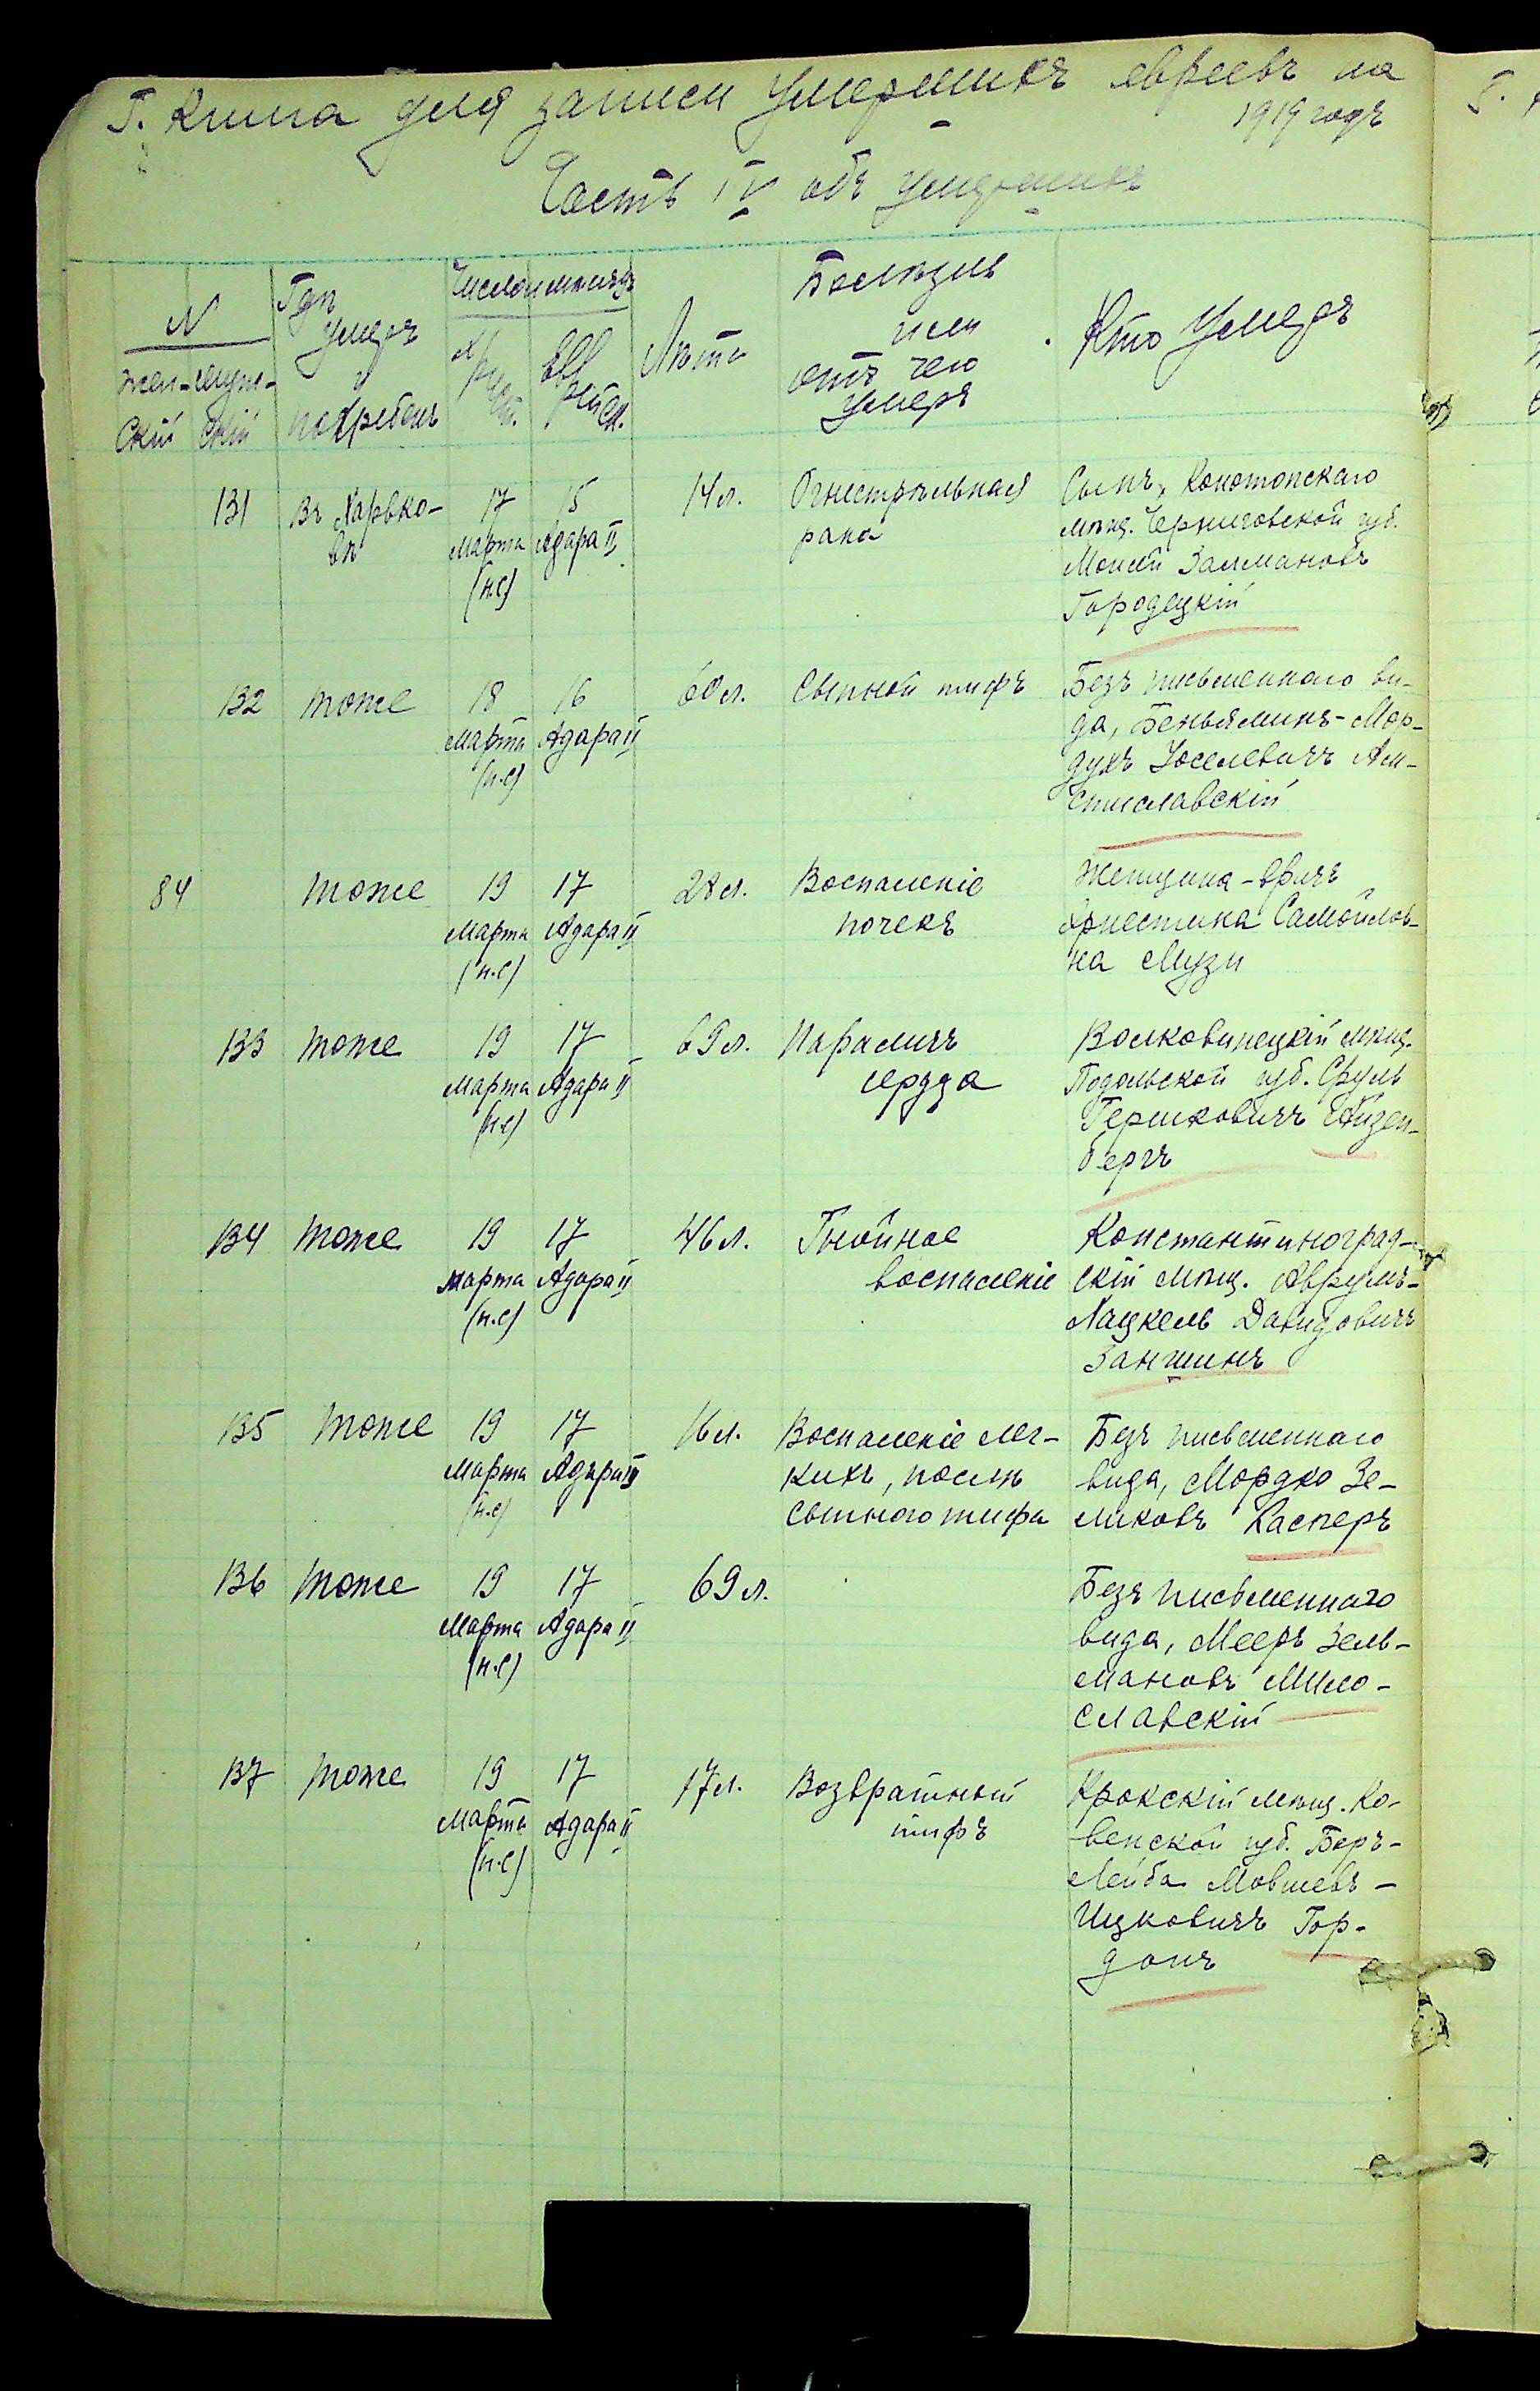 Г. Книга для записи умершихъ евреевъ на
1919 годъ
Часть IV объ умершихъ
N
жен- муж-
скій скій
Гдѣ
умеръ
и
погребенъ
Число и мѣсяцъ
Христ.
Еврейск.
Лѣта
Болѣзнь
или
отъ чего
умеръ
Кто умеръ
131 Въ Харько- 17 15 14 л. Огнестрѣльная Сынъ, Конотопскаго
вѣ Марта Адара II рана мѣщ. Черниговской губ.
(н.с) Моисей Залмановъ
Городецкій
132 тоже 18 16 60 л. Сыпной тифъ Безъ письменнаго ви-
Марта Адара II да, Беньяминъ-Мор-
(н.с) духъ Іоселевичъ Ам-
стиславскій
84 тоже 19 17 28 л. Воспаленіе Женщина-врачъ
Марта Адара II почекъ Эрнестина Самойлов-
(н.с) на Музи
133 тоже 19 17 69 л. Параличъ Волковинецкій мѣщ.
Марта Адара II сердца Подольской губ. Сруль
(н.с) Гершковичъ Айзен-
бергъ
134 тоже 19 17 46 л. Гнойное Константиноград-
марта Адара II воспаленіе скій мѣщ. Аврумъ-
(н.с) Хацкель Давидовичъ
Заншинъ
135 тоже 19 17 16 л. Воспаленіе лег- Безъ письменнаго
Марта Адара II кихъ, послѣ вида, Мордко Зе-
(н.с) сыпного тифа ликовъ Касперъ
136 тоже 19 17 69 л. Безъ письменнаго
Марта Адара II вида, Мееръ Зель-
(н.с) мановъ Мило-
славскій
137 тоже 19 17 17 л. Возвратный Крокскій мѣщ. Ко-
Марта Адара II тифъ венской губ. Беръ-
(н.с) Лейба Мовшевъ-
Ицковичъ Гор-
донъ